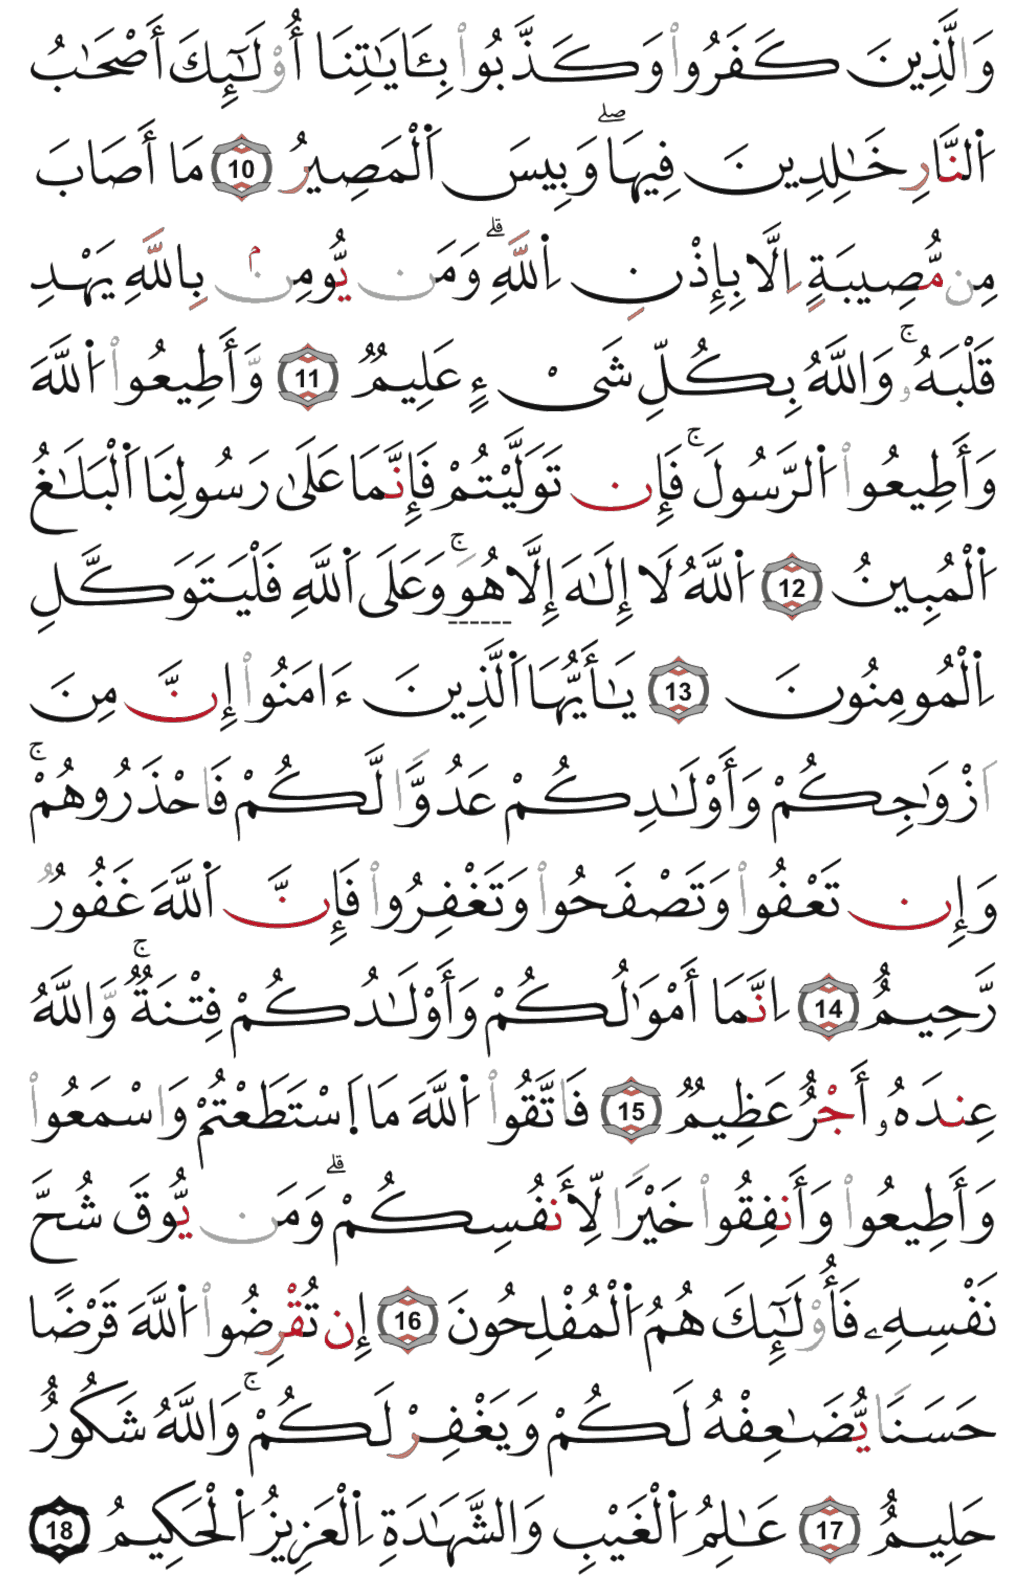 وَالَّذِينَ كَفَرُواْ وَكَذَّبُواْ بِـَٔايَٰتِنَا أُوْلَٰٓئِكَ أَصْحَٰبُ
اُ۬لنَّارِ خَٰلِدِينَ فِيهَاۖ وَبِيسَ اَ۬لْمَصِيرُ 10 مَا أَصَابَ
مِن مُّصِيبَةٍ اِلَّا بِإِذْنِ اِ۬للَّهِۗ وَمَن يُّومِنۢ بِاللَّهِ يَهْدِ
قَلْبَهُۥۚ وَاللَّهُ بِكُلِّ شَيْءٍ عَلِيمٌ 11 وَأَطِيعُواْ اُ۬للَّهَ
وَأَطِيعُواْ اُ۬لرَّسُولَۚ فَإِن تَوَلَّيْتُمْ فَإِنَّمَا عَلَىٰ رَسُولِنَا اَ۬لْبَلَٰغُ
اُ۬لْمُبِينُ 12 اُ۬للَّهُ لَا إِلَٰهَ إِلَّا هُوَۚ وَعَلَى اَ۬للَّهِ فَلْيَتَوَكَّلِ
اِ۬لْمُومِنُونَ 13 يَٰأَيُّهَا اَ۬لَّذِينَ ءَامَنُواْ إِنَّ مِنَ
اَزْوَٰجِكُمْ وَأَوْلَٰدِكُمْ عَدُوًّا لَّكُمْ فَاحْذَرُوهُمْۚ
وَإِن تَعْفُواْ وَتَصْفَحُواْ وَتَغْفِرُواْ فَإِنَّ اَ۬للَّهَ غَفُورٌ
رَّحِيمٌ 14 اِنَّمَا أَمْوَٰلُكُمْ وَأَوْلَٰدُكُمْ فِتْنَةٌۚ وَاللَّهُ
عِندَهُۥ أَجْرٌ عَظِيمٌ 15 فَاتَّقُواْ اُ۬للَّهَ مَا اَ۪سْتَطَعْتُمْ وَاسْمَعُواْ
وَأَطِيعُواْ وَأَنفِقُواْ خَيْرًا لِّأَنفُسِكُمْۗ وَمَن يُّوقَ شُحَّ
نَفْسِهِۦ فَأُوْلَٰٓئِكَ هُمُ اُ۬لْمُفْلِحُونَ 16 إِن تُقْرِضُواْ اُ۬للَّهَ قَرْضًا
حَسَنًا يُّضَٰعِفْهُ لَكُمْ وَيَغْفِرْ لَكُمْۚ وَاللَّهُ شَكُورٌ
حَلِيمٌ 17 عَٰلِمُ اُ۬لْغَيْبِ وَالشَّهَٰدَةِ اِ۬لْعَزِيزُ اُ۬لْحَكِيمُ 18